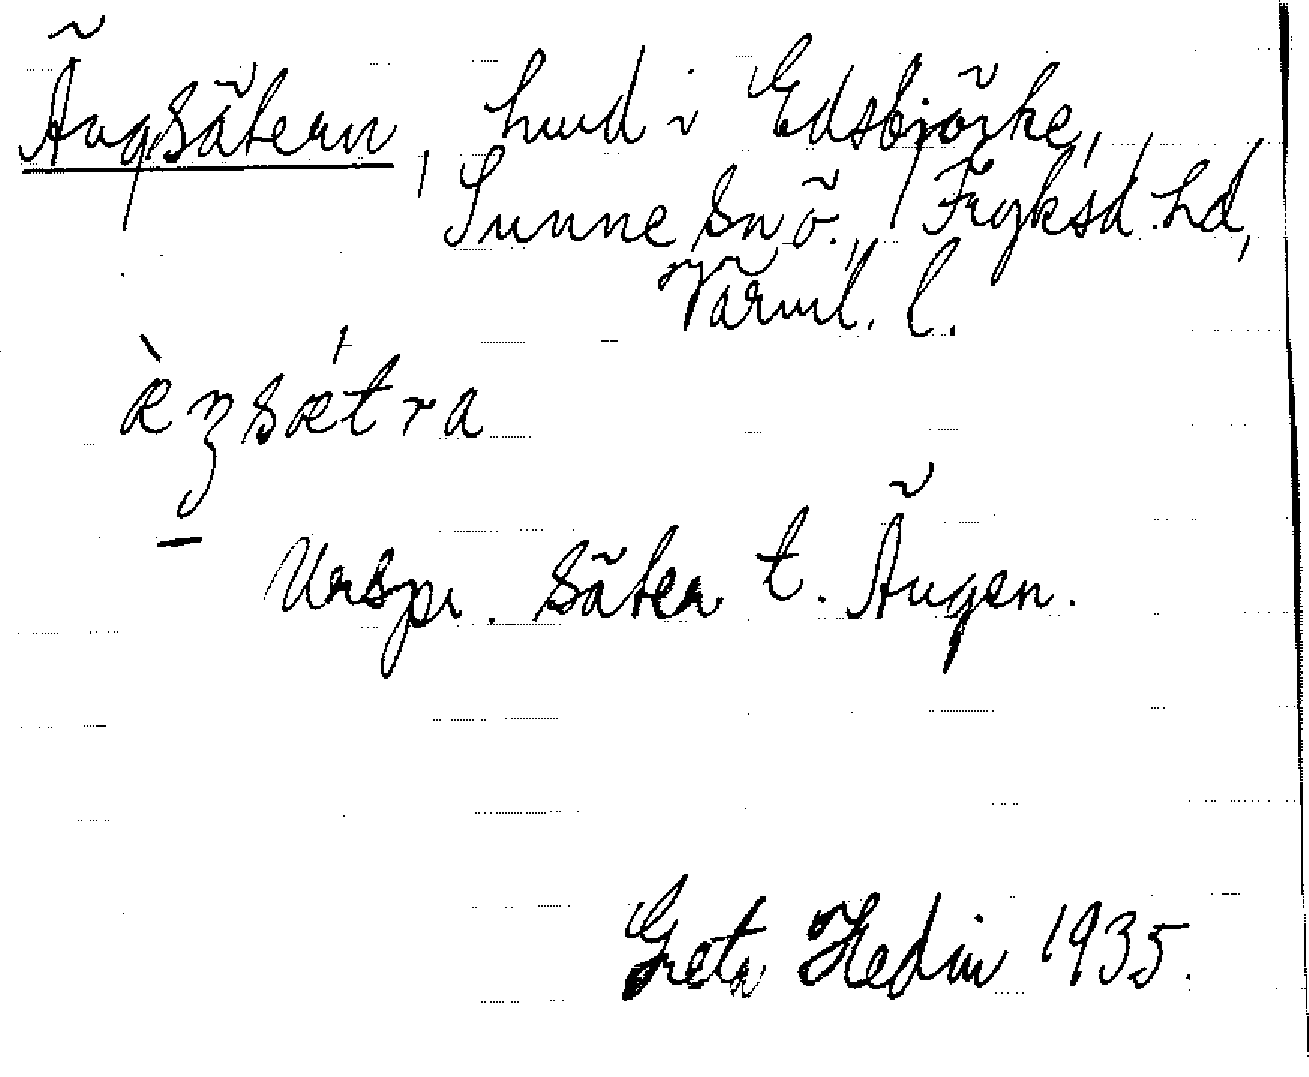 Ängsätern, hmd i Edsbjörke,
Sunne snö., Fryksd. hd,
Värml. l.
æ̀ŋsǽtra
Urspr. säter t. Ängen.
Greta Hedin 1935.